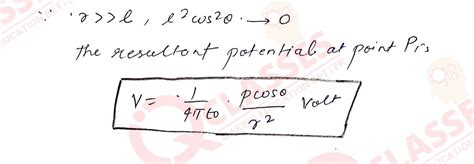 ∵ r>>l , l²cos²θ → 0
the resultant potential at point P, is
V = 1/4πε0 · pcosθ/r² Volt
CLASSES